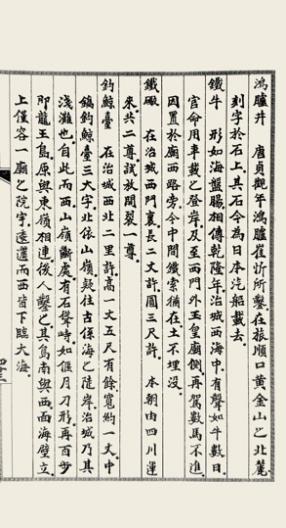 鴻臚井　唐貞觀年鴻臚崔忻所鑿在旅順口黃金山之北麓
刻字於石上其石今為日本汽船載去
鐵牛　形如海盤腸相傳乾隆年治城西海中有聲如牛數日
官命用車載之登岸及至西門外玉皇廟側再駕數馬不進
因置於廟西路旁今中間鐵索猶在土不埋沒
鐵礮　在治城西門裏長二丈許圓三尺許　本朝由四川運
來共二尊試放開裂一尊
釣鯨臺　在治城西北二里許高一丈五尺有餘寬約一丈中
鐫釣鯨臺三大字北依山嶺疑往古係海之陡岸治城乃其
淺灘也自此而西山嶺斷處有石聳峙如偃月刀形再百步
即龍王島原與東嶺相連後人鑿之其島南與西面海壁立
上僅容一廟之院宇遠邇而西皆下臨大海